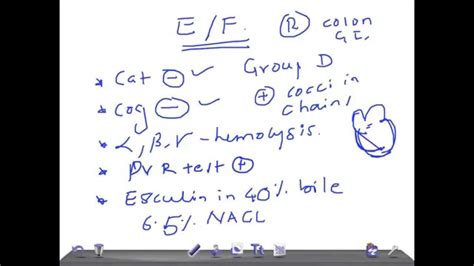 E/F. Ⓡ colon
G.E.
* Cat ⊖ ✓ Group D
* Cog ⊖ ✓ ⊕ cocci in chains
* α, β, γ - hemolysis.
* PYR test ⊕
* Esculin in 40% bile
6.5% NACL